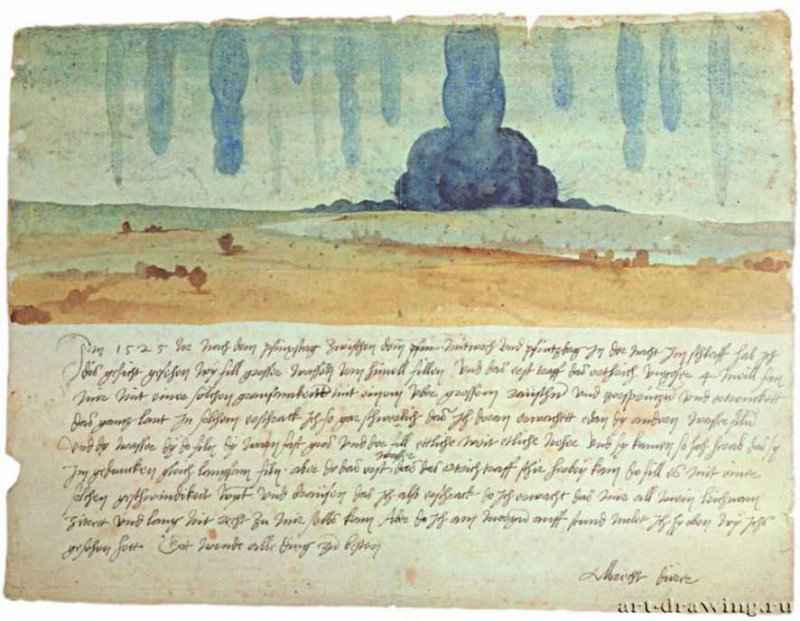 Im 1525 Jor nach dem pfinxstag zwischen dem Mitwoch und pfintzdag in der nacht im schlaff hab ich
dis gesicht gesehen wy fill grosser wassern vom himell fillen Und das erst traff das erthrich ungefer 4 meill fan
mir mit einer solchen grausamkeitt mit einem uber grossem raüschn und zersprützn und ertrenckett
das gantz lant In solchem erschrack ich so gar schwerlich das ich doran erwachett edan dy andern wasser filn
und dy wasser dy do filn dy warn fast gros und der fill ettliche weit etliche neher und sy kamen so hoch herab das sy
im gedancken gleich langsam filn aber do das erst wasser das das ertrich traff schir herbey kam do fill es mit einer
solchen geschwindikeit wynt und braüsen das ich also erschrack do ich erwacht das mir all mein leichnam
zitrett und lang nit recht zu mir selbs kam Aber do ich am morgn auff stund molet ich hy oben wy ichs
gesehen hett. Got wende alle ding zu besten
Albrecht dürer
art-drawing.ru